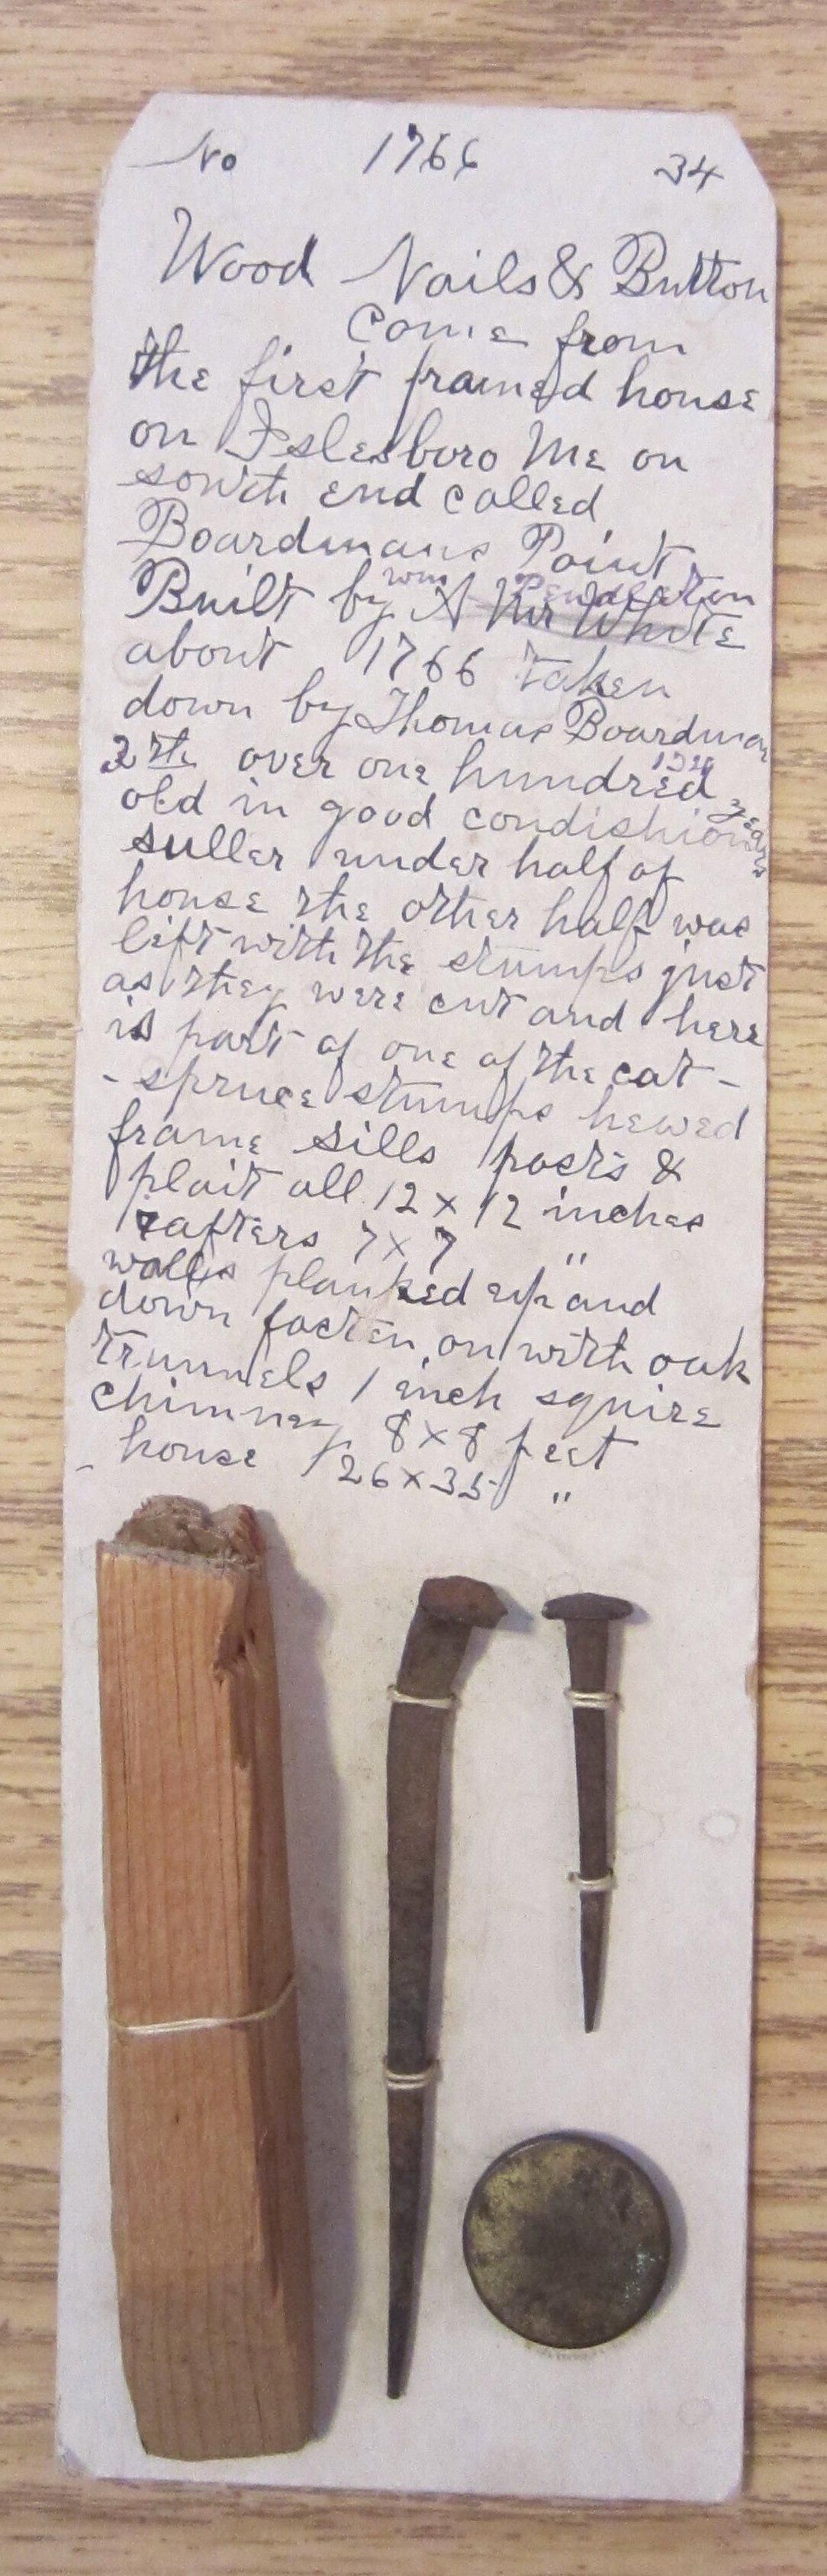 No 1766 34
Wood Nails & Button
come from
the first framed house
on Islesboro Me on
south end called
Boardmans Point
wm Pendleton
Built by A Mr White
about 1766 taken
down by Thomas Boardman
2th over one hundred years
old in good condishion
suller under half of
house the other half was
left with the stumps just
as they were cut and here
is part of one of the cat-
-spruce stumps hewed
frame sills posts &
plait all 12 x 12 inches
rafters 7 x 7 "
walls planked up and
down fasten on with oak
trunnels 1 inch squire
chimney 8 x 8 feet
- house 26 x 35 "